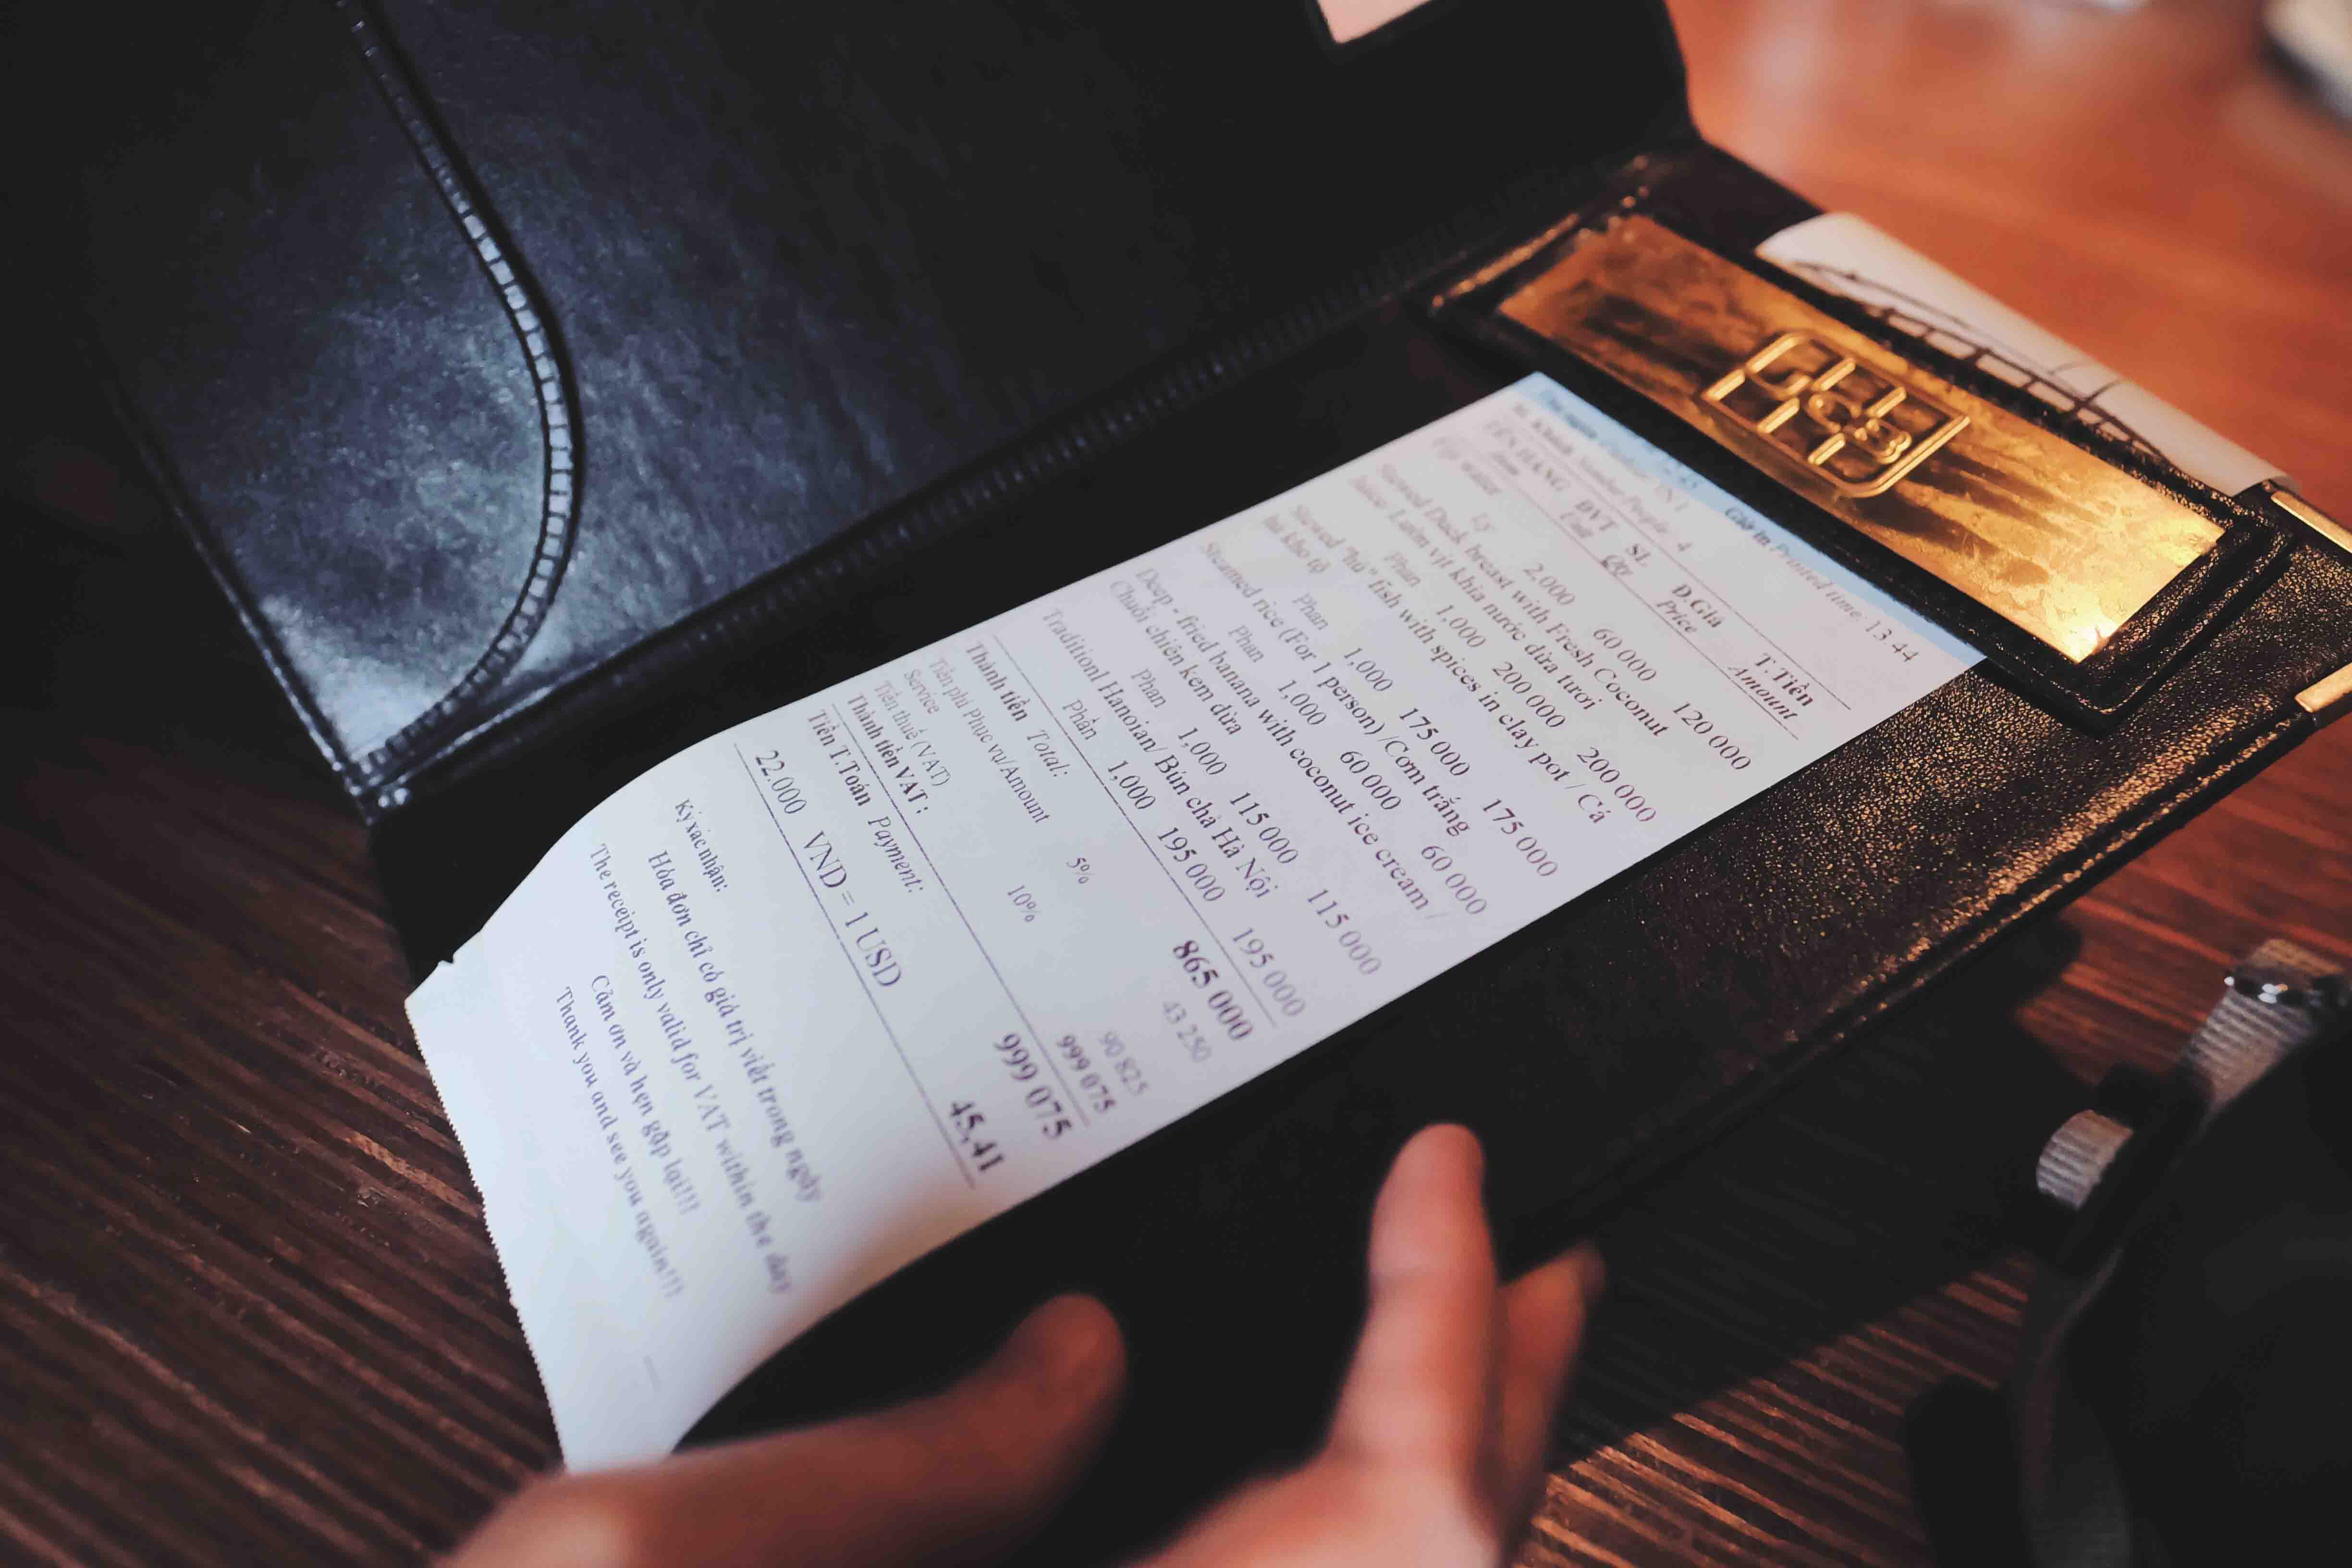 Giờ in Printed time 13 44
Số Khách Number People 4
TÊN HÀNG ĐVT SL Đ.Giá T.Tiền
Item Unit Qty Price Amount
water
Ly 2,000 60 000 120 000
Stewed Duck breast with Fresh Coconut
juice Lườn vịt khìa nước dừa tươi
Phan 1,000 200 000 200 000
Stewed "hú" fish with spices in clay pot / Cá
hú kho tộ
Phan 1,000 175 000 175 000
Steamed rice (For 1 person) /Cơm trắng
Phan 1,000 60 000 60 000
Deep - fried banana with coconut ice cream /
Chuối chiên kem dừa
Phan 1,000 115 000 115 000
Traditionl Hanoian/ Bún chả Hà Nội
Phần 1,000 195 000 195 000
Thành tiền Total: 865 000
Tiền phí Phục vụ/Amount 5% 43 250
Service
Tiền thuế (VAT) 10% 90 825
Thành tiền VAT : 999 075
Tiền T.Toán Payment: 999 075
22.000 VND = 1 USD 45,41
Ký xác nhận:
Hóa đơn chỉ có giá trị viết trong ngày
The receipt is only valid for VAT within the day
Cảm ơn và hẹn gặp lại!!!
Thank you and see you again!!!